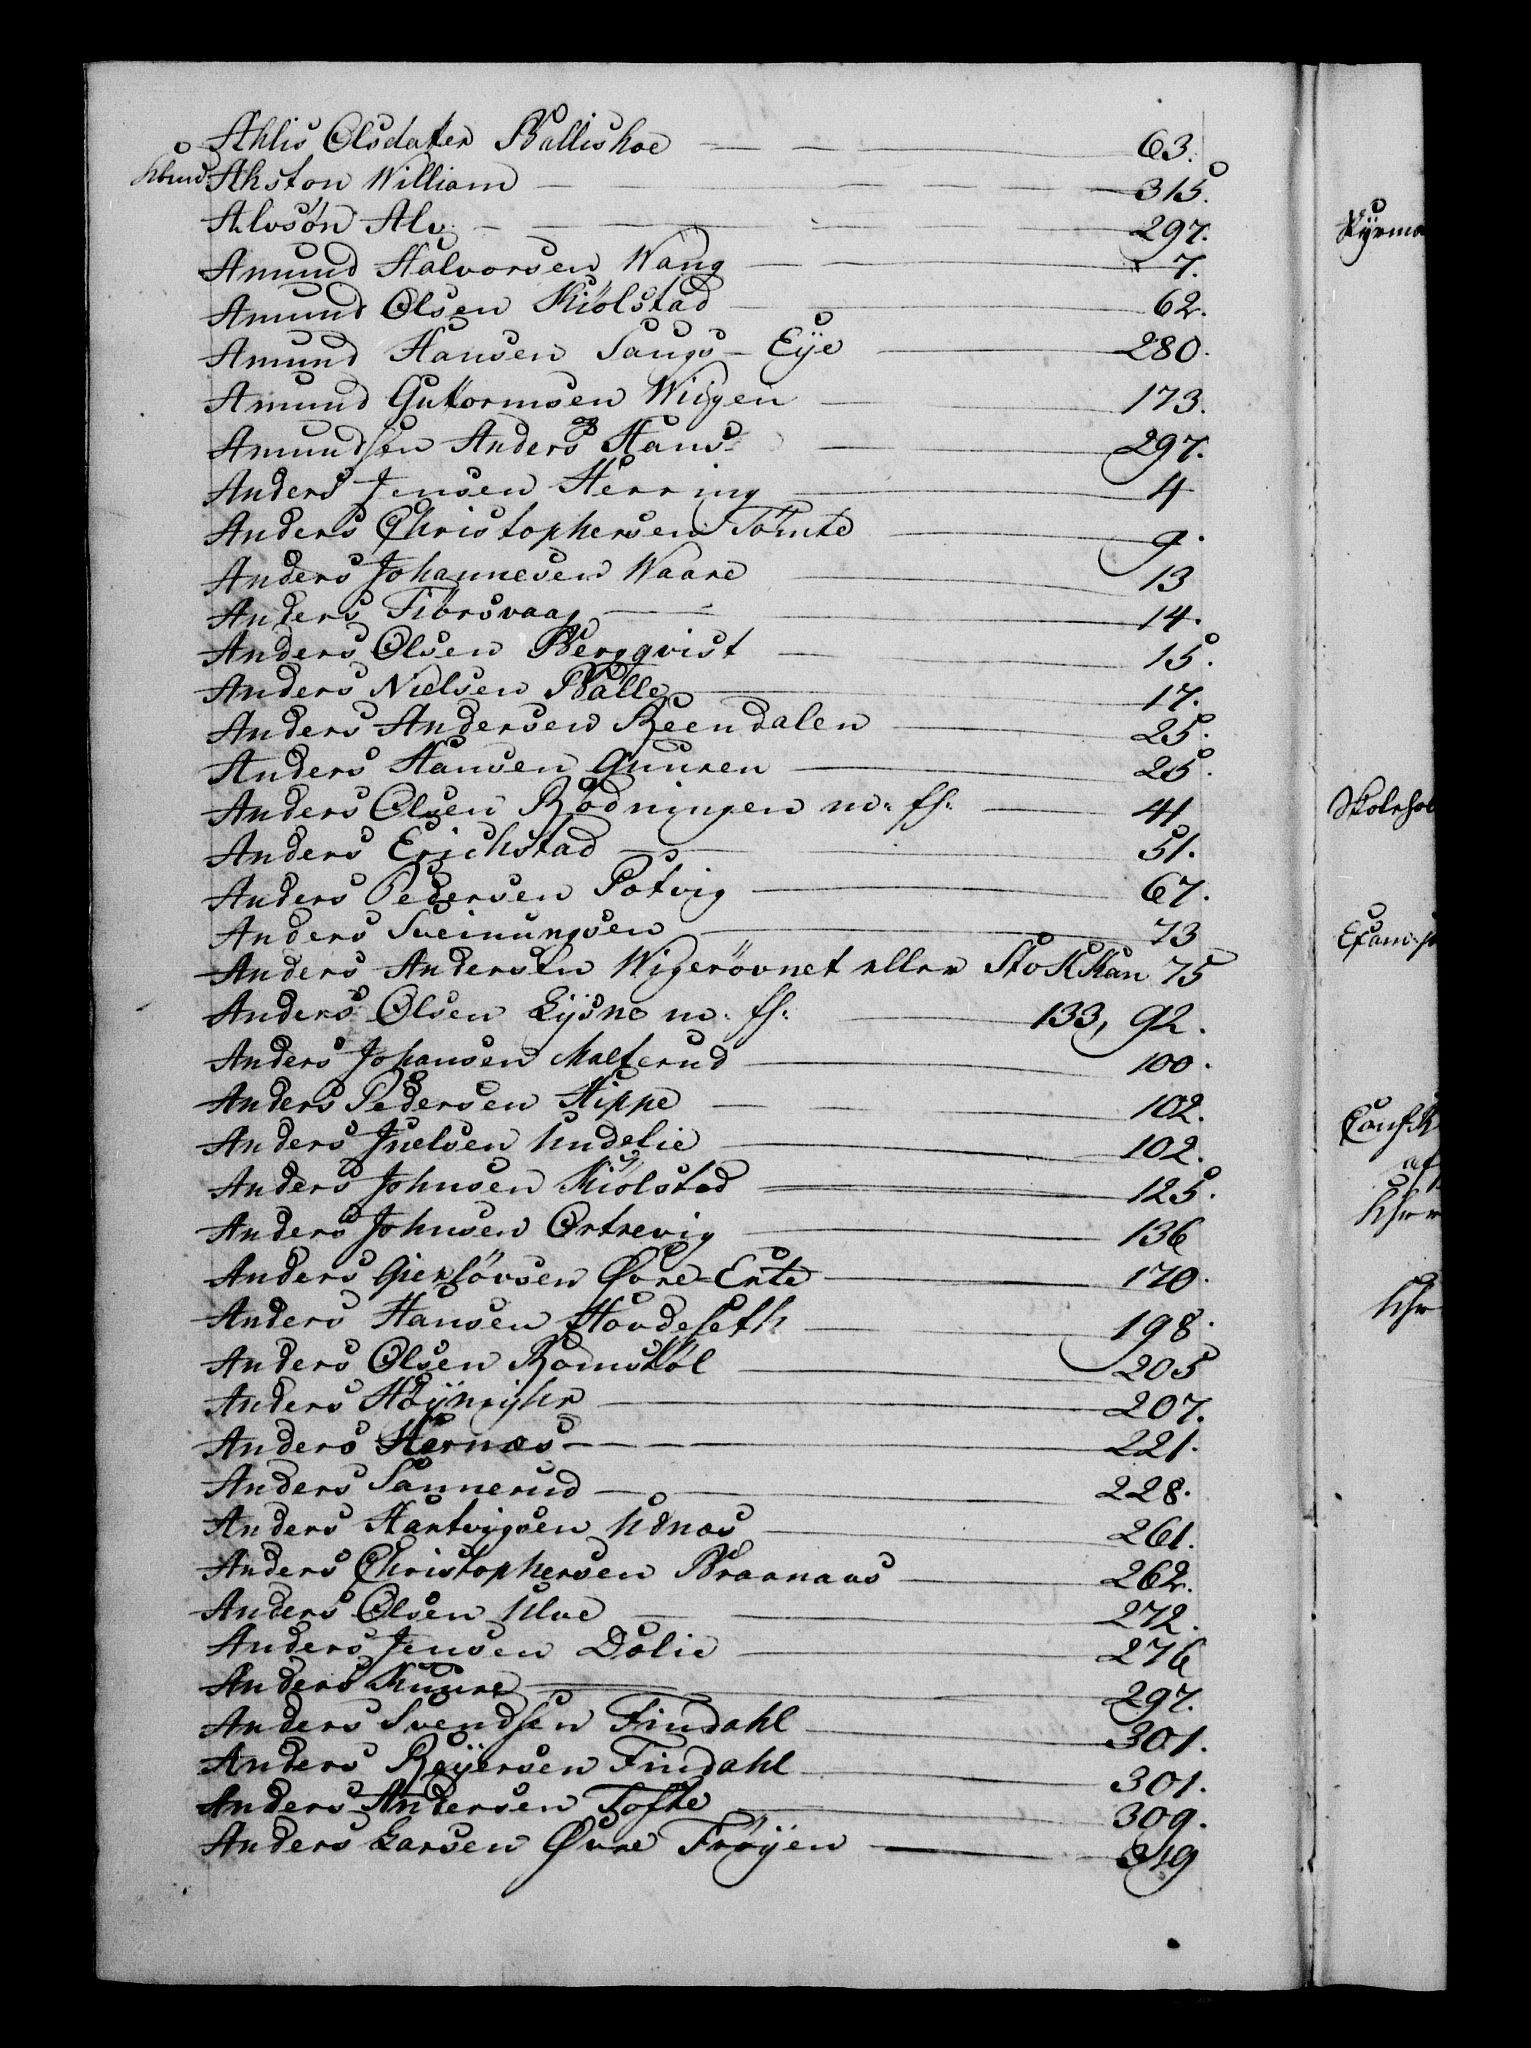 Ahlis Olsdater Ballishoe — 63.
Ahston William — 315.
Alvsön Alv. — 297.
Amund Halvorsen Wang — 7.
Amund Olsen Kiölstad — 62.
Amund Hansen Saugs-Eÿe — 280.
Amund Gutormsen Wiigen — 173.
Amundsen Anders Hans — 297.
Anders Jensen Herring — 4
Anders Christophersen Tömte — 9.
Anders Johannesen Waare — 13
Anders Tiörsvaag — 14.
Anders Olsen Bergqvist — 15.
Anders Nielsen Balle — 17.
Anders Andersen Reendalen — 25.
Anders Hansen Gunren — 25.
Anders Olsen Rödningen m. fl. — 41
Anders Erichstad — 51.
Anders Pedersen Potvig — 67.
Anders Sveinungsen — 73
Anders Andersen Wigerövnet eller Stokkan 75
Anders Olsen Lÿsne m. fl. — 133, 92.
Anders Johansen Malterud — 100.
Anders Pedersen Hippe — 102.
Anders Juelsen Undelie — 102.
Anders Johnsen Kiölstad — 125.
Anders Johnsen Ortrevig — 136
Anders Gierlövsen Øvre-Erte — 170.
Anders Hansen Hovdeseth — 198.
Anders Olsen Romsköl — 205
Anders — 207.
Anders Hernæs — 221.
Anders Sannerud — 228.
Anders Hartvigsen Udnæs — 261.
Anders Christophersen Braanaas — 262.
Anders Olsen Ulve — 272.
Anders Jensen Dölie — 276
Anders Kuure — 297.
Anders Svendsen Findahl — 301.
Anders Reÿersen Findahl — 301.
Anders Andersen Tofte — 309.
Anders Larsen Øvre Frøÿen — 319